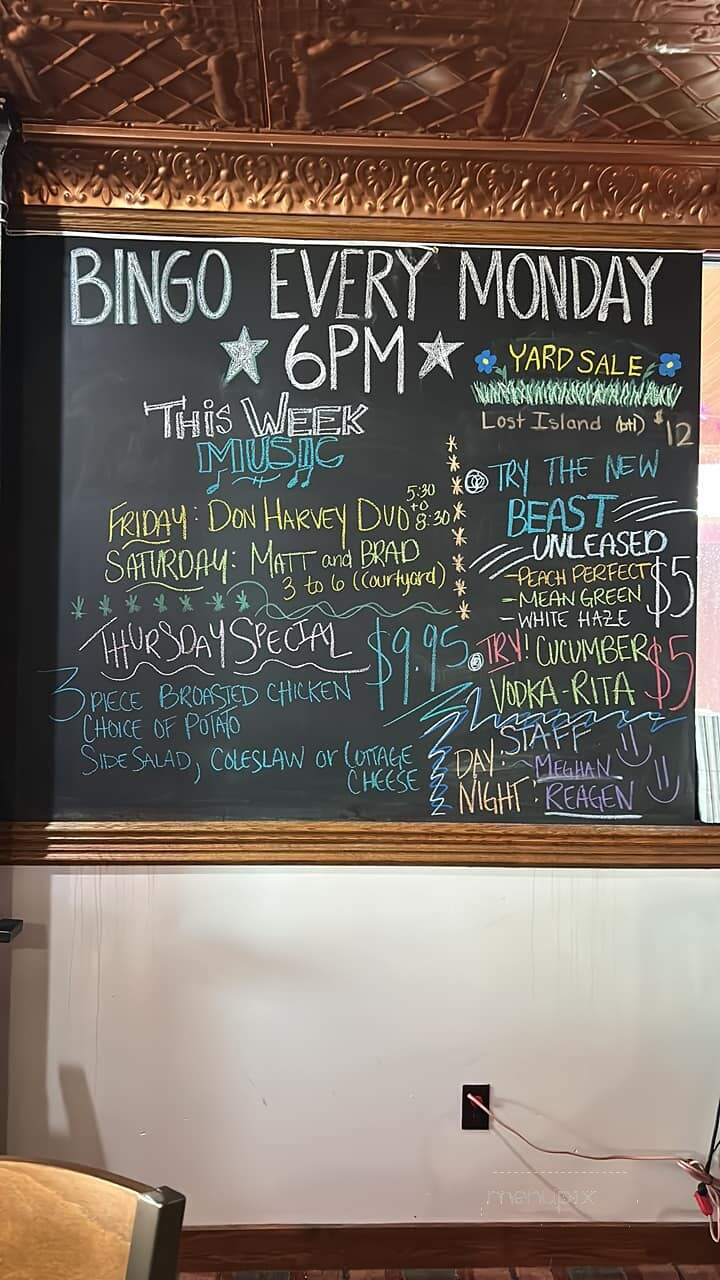 BINGO EVERY MONDAY
6PM
THIS WEEK
MUSIC
FRIDAY: DON HARVEY DUO 5:30 to 8:30
SATURDAY: MATT and BRAD
3 to 6 (Courtyard)
THURSDAY SPECIAL $9.95
3 PIECE BROASTED CHICKEN
CHOICE OF POTATO
SIDE SALAD, COLESLAW or COTTAGE
CHEESE
YARD SALE
Lost Island (btl) $12
TRY THE NEW
BEAST
UNLEASED
- PEACH PERFECT $5
- MEAN GREEN
- WHITE HAZE
TRY! CUCUMBER $5
VODKA-RITA
STAFF
DAY: MEGHAN
NIGHT: REAGEN
menupix